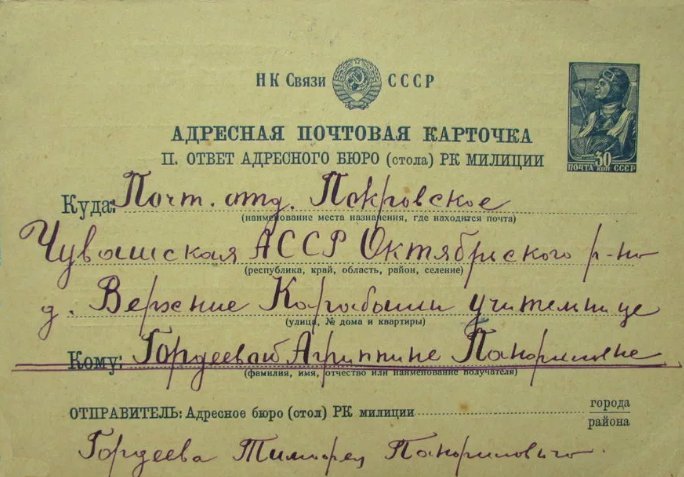 НК Связи СССР
30
ПОЧТА КОП СССР
АДРЕСНАЯ ПОЧТОВАЯ КАРТОЧКА
II. ОТВЕТ АДРЕСНОГО БЮРО (стола) РК МИЛИЦИИ
Куда: Почт. отд. Покровское
(наименование места назначения, где находится почта)
Чувашская АССР Октябрьского р-на
(республика, край, область, район, селение)
д. Верхние Карабаши учительнице
(улица, № дома и квартиры)
Кому: Гордеевой Агриппине
(фамилия, имя, отчество или наименование получателя)
ОТПРАВИТЕЛЬ: Адресное бюро (стол) РК милиции
города
района
Гордеева